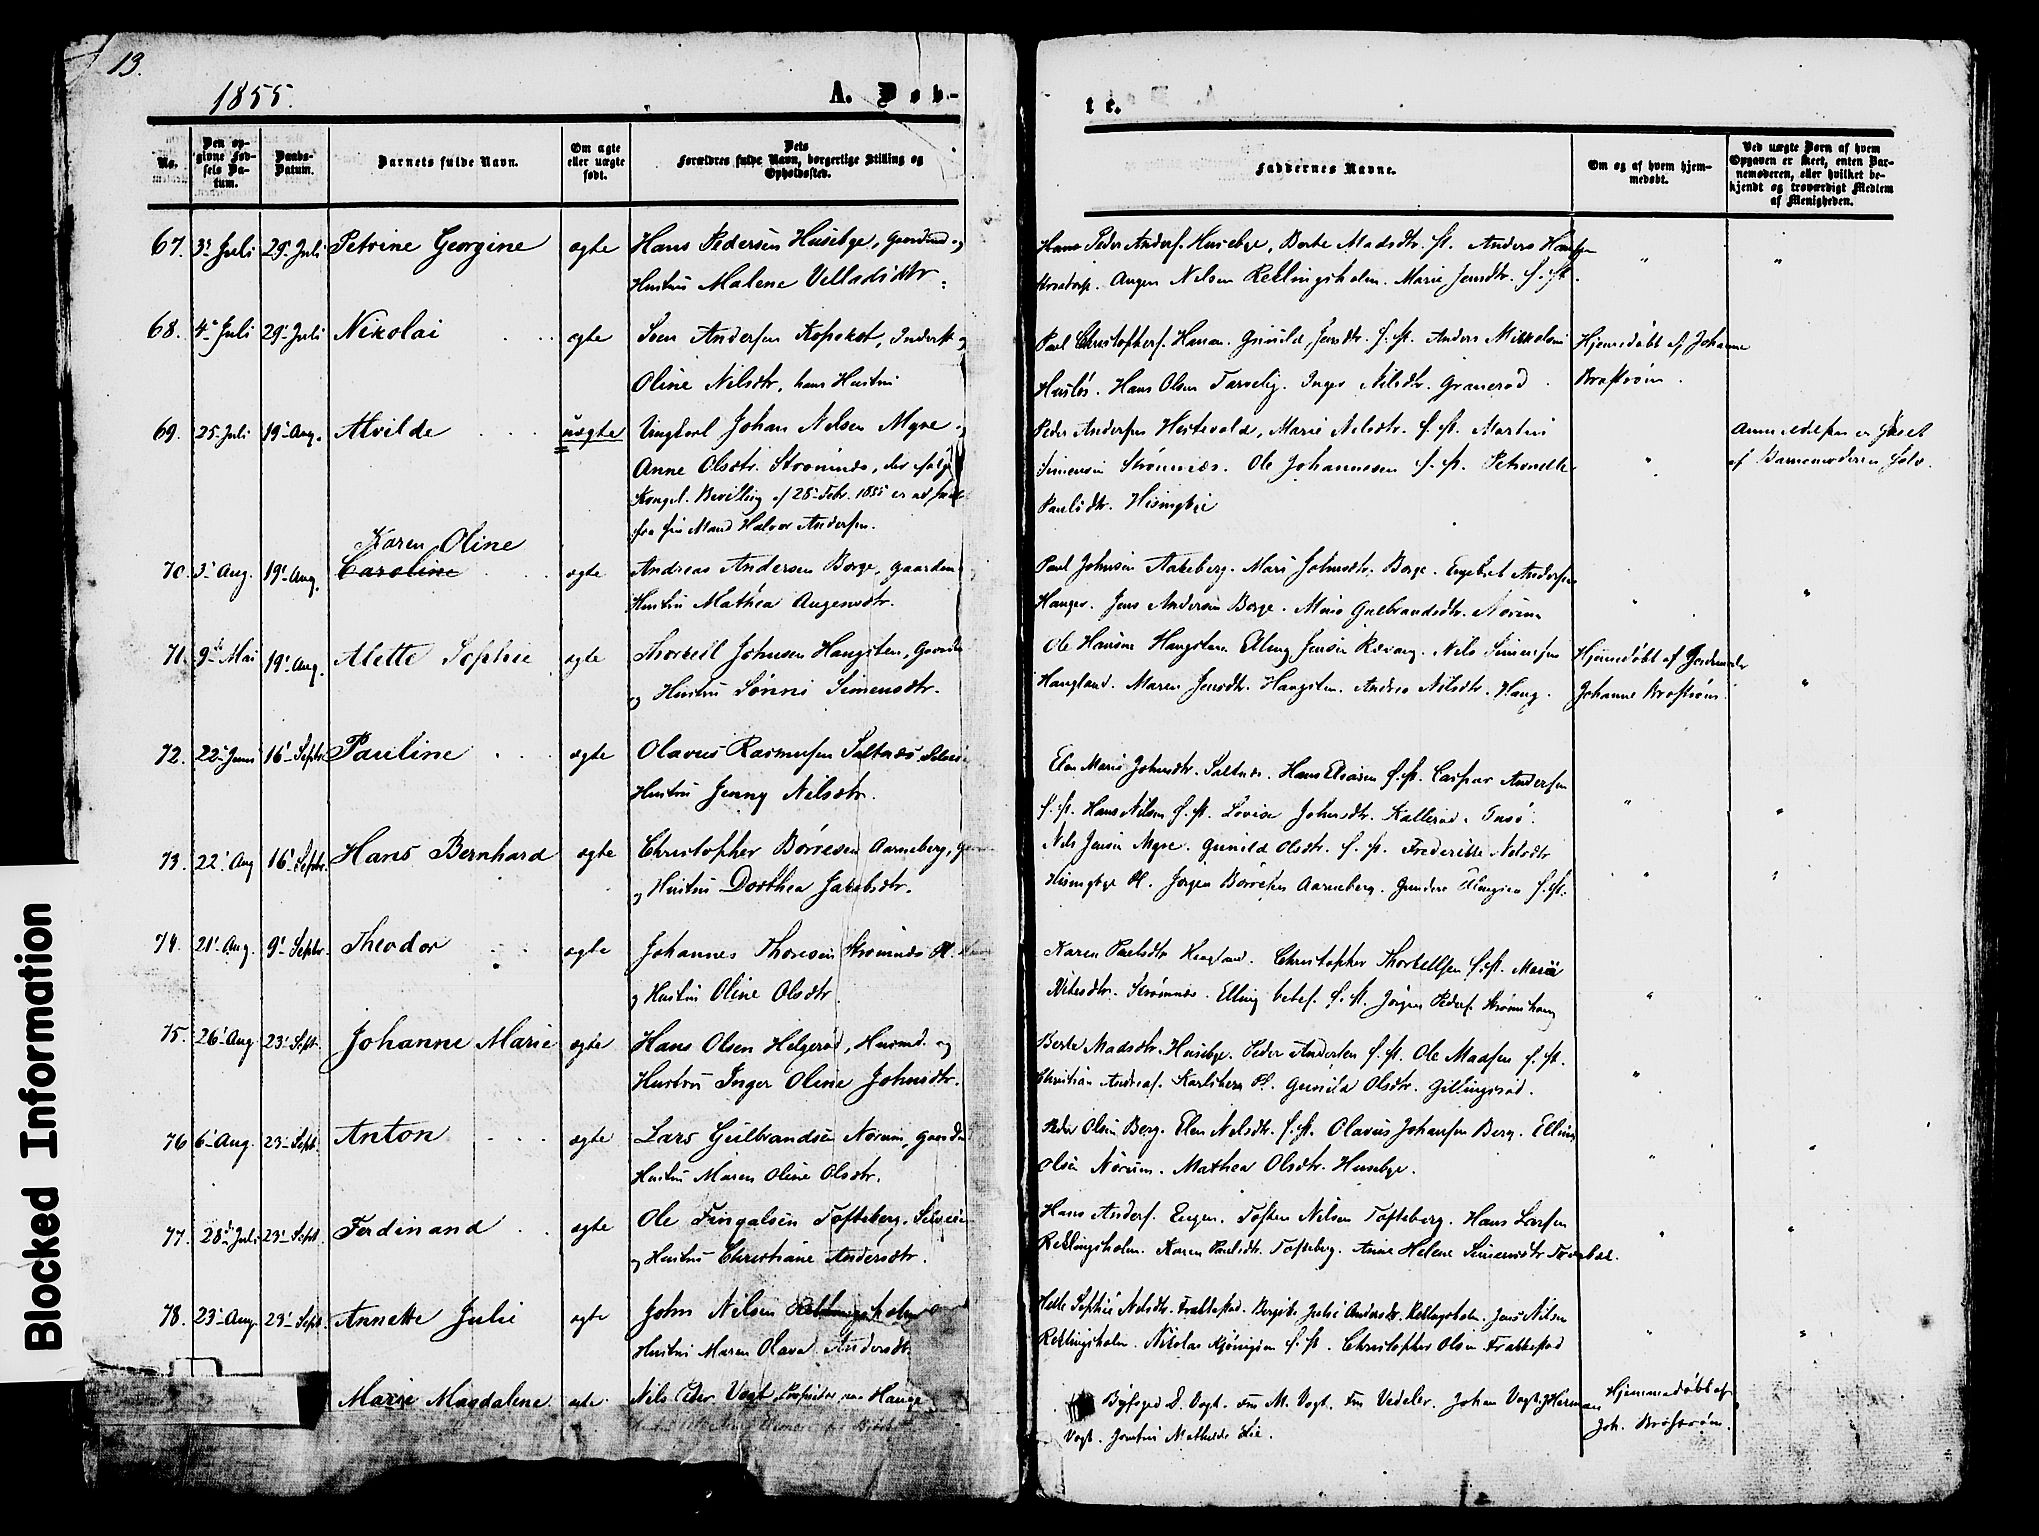 13.
1855.
A. Døb-
te.
No.
Den op-
givne Fød-
sels Da-
tum.
Daabs-
Datum.
Barnets fulde Navn.
Om ægte
eller uægte
født.
Dets
Forældres fulde Navn, borgerlige Stilling og
Opholdssted.
Faddernes Navne.
Om og af hvem hjem-
medøbt.
Ved uægte Børn af hvem
Opgaven er skeet, enten Bar-
nemoderen, eller hvilket be-
kjendt og troværdigt Medlem
af Menigheden.
67. 3' Juli 29' Juli Petrine Georgine ægte Hans Pedersen Husebye, Gaardmd og
Hustru Malene Velladsdtr.
Hans Peder Anders. Husebye, Berte Madsdtr. s. st. Anders Hansen
Augen Nilsen Rektingsholm. Marie Jensdtr. s. st.
68. 4' Juli 29' Juli Nikolai ægte Sven Andersen Kopskot, Inderst og
Oline Nilsdtr, hans Hustru
Poul Christophers. Hanan. Gunild Jensdtr. s. st. Anders Mikkelsen
Husløs. Hans Olsen Tarvelig. Inger Nilsdtr. Granerød.
Hjemmedøbt af Johanne
Brostrøm.
69. 25' Juli 19' Aug. Alvilde uægte Ungkarl Johan Nilsen Myre og
Anne Olsdtr. Strømnæs, der ifølge
Kongel. Bevilling af 28' Febr. 1855 er
fra sin Mand Halvor Andersen.
Peder Andersen Hestevold, Marie Nilsdtr. s. st. Martin
Simensen Strømnæs. Ole Johannesen s. st. Petronelle
Paulsdtr. Hisingbye
Anmeldelsen er skeet
af Barnemoderen selv.
70. 3' Aug. 19' Aug. Karen Oline
Caroline ægte Andreas Andersen Borge, Gaardm
Hustru Mathea Augensdtr.
Poul Johnsen Aakeberg. Mari Johnsdtr. Borge. Engebret Andersen
Hanger. Jens Andersen Borge. Marie Gulbrandsdtr. Norum
71. 9' Mai 19' Aug. Alette Sophie ægte Thorkell Johnsen Haugsten, Gaardm
og Hustru Sønni Simensdtr.
Ole Hansen Haugsten. Elling Jensen Kvang. Nils Simensen
Haugland. Maren Jensdtr. Haugsten. Andrea Nilsdtr. Haug.
Hjemmedøbt af Jordemoder
Johanne Brostrøm.
72. 22' Juni 16' Septr. Pauline ægte Olavus Rasmusen Saltnæs
Hustru Jenny Nilsdtr.
Elen Marie Johnsdtr. Saltnæs. Hans Eliasen s. st. Caspar Andersen
s. st. Hans Nilsen s. st. Lovise Johnsdtr. Kallerød. Tusø.
73. 22' Aug 16' Septr. Hans Bernhard ægte Christopher Børresen Aarneberg,
og Hustru Dorthea Jakobsdtr.
Nils Jensen Myre. Gunild Olsdtr. s. st. Frederikke Nilsdtr
Hisingbye Pl. Jørgen Børresen Aarneberg. Gundere Ellingsen s. st.
74. 21' Aug. 9' Septbr. Theodor ægte Johannes Thoresen Strømnæs Pl.
og Hustru Oline Olsdtr.
Karen Paulsdtr Haugland. Christopher Thorkellsen s. st. Marie
Nilsdtr. Strømnæs. Elling s. st. Jørgen Peders. Strømshaug
75. 26' Aug 23' Sept. Johanne Marie ægte Hans Olsen Helgerød, Husmd. og
Hustru Inger Oline Johnsdtr.
Berte Madsdtr. Husebye. Peder Andersen s. st. Ole Madsen s. st.
Christian Andreas. Karlshern Pl. Gunild Olsdtr. Gillingsrød.
76 6' Aug. 23' Sept. Anton ægte Lars Gulbrandsen Norum, Gaardm
Hustru Maren Oline Olsdtr.
Peder Olsen Berg. Elen Nilsdtr. s. st. Olavus Johansen Berg. Elling
Olsen Norum. Mathea Olsdtr. Husebye.
77. 28' Juli 23' Sept. Ferdinand ægte Ole Fingalsen Tofteberg,
og Hustru Christiane Andersdtr.
Hans Anders. Engen. Tosten Nilsen Tofteberg. Hans Larsen
Rektingsholm. Karen Paulsdtr. Tofteberg. Anne Helene Simensdtr
78. 23' Aug. 23' Sept. Annette Julie ægte John Nilsen Rektingsholm
Hustru Maren Olava Andersdtr
Helle Sophie Nilsdtr. Frakkestad. Bergitte Julie Andersdtr. Rektingsholm. Jens Nilsen
Rektingsholm. Nikolai s. st. Christopher Olsen Frakkestad
Marie Magdalene ægte Nils Peter Vogt Hauge
Byfoged D. Vogt. Fru M. Vogt. Fru Vedeler. Johan Vogt. Herman
Vogt. Jomfru Mathilde Lie.
Hjemmedøbt af
Joh. Brostrøm.
Blocked Information